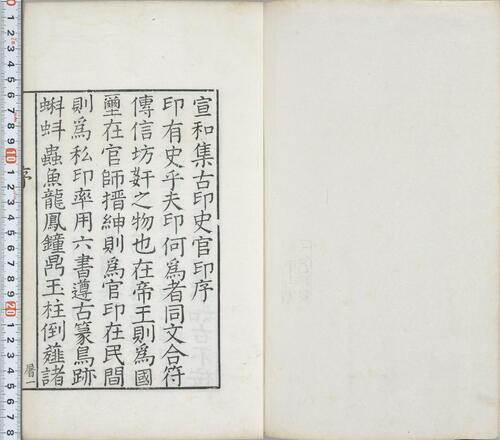 宣和集古印史官印序
印有史乎夫印何爲者同文合符
傳信坊奸之物也在帝王則爲國
壐在官師搢紳則爲官印在民間
則爲私印率用六書遵古篆鳥跡
蝌蚪蟲魚龍鳳鐘鼎玉柱倒薤諸
序